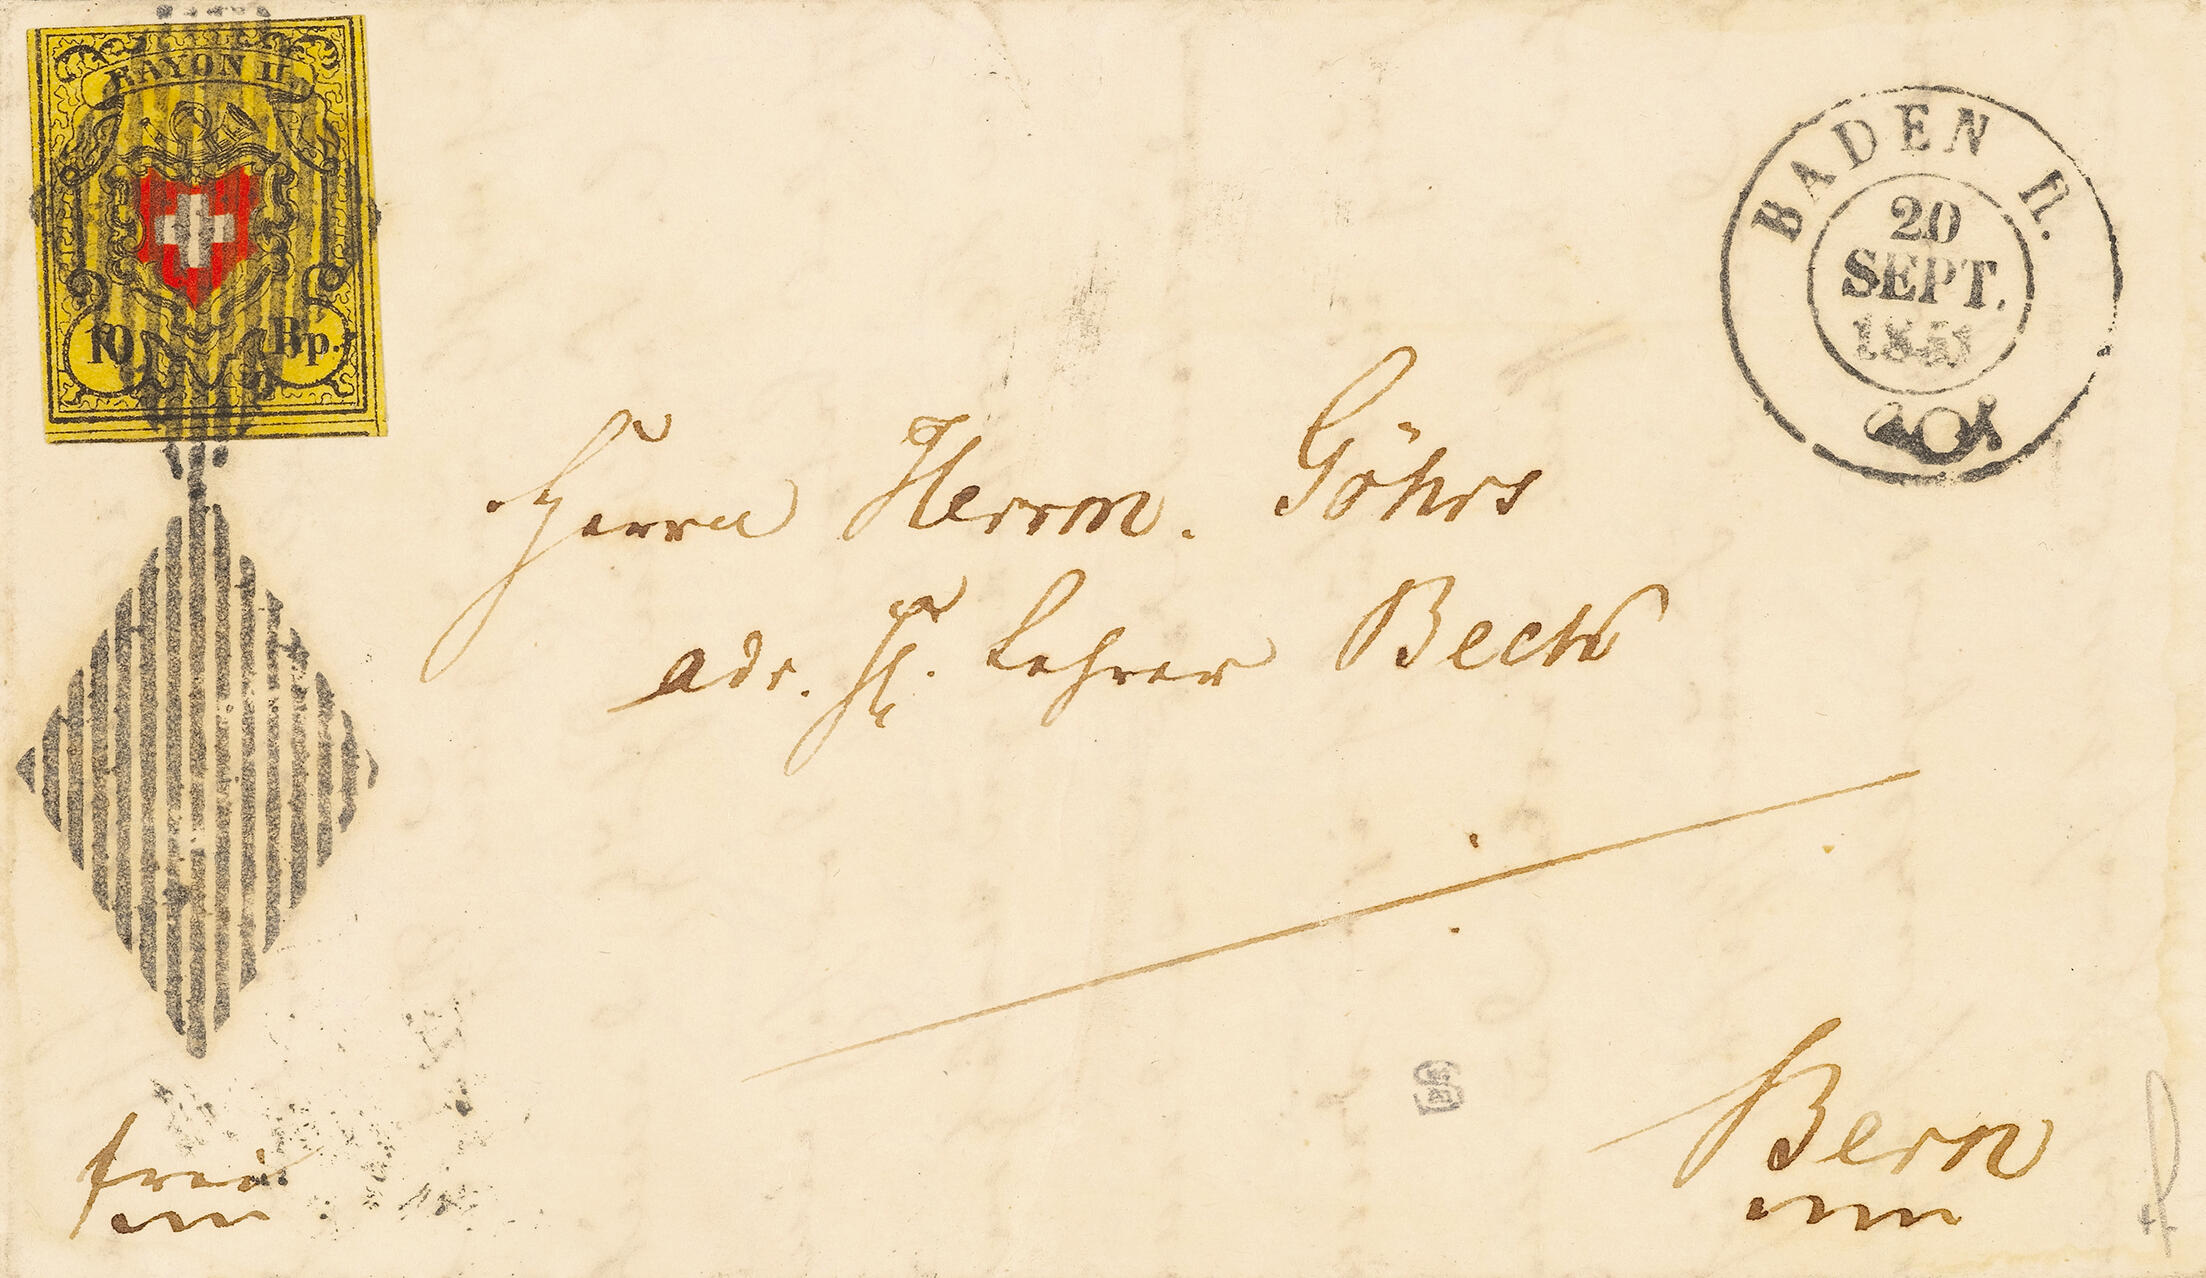 RAYON II.
10 Rp.
BADEN
20
SEPT.
Herrn Herrm. Göhrs
adr. H. Lehrer Beck
Bern
frei